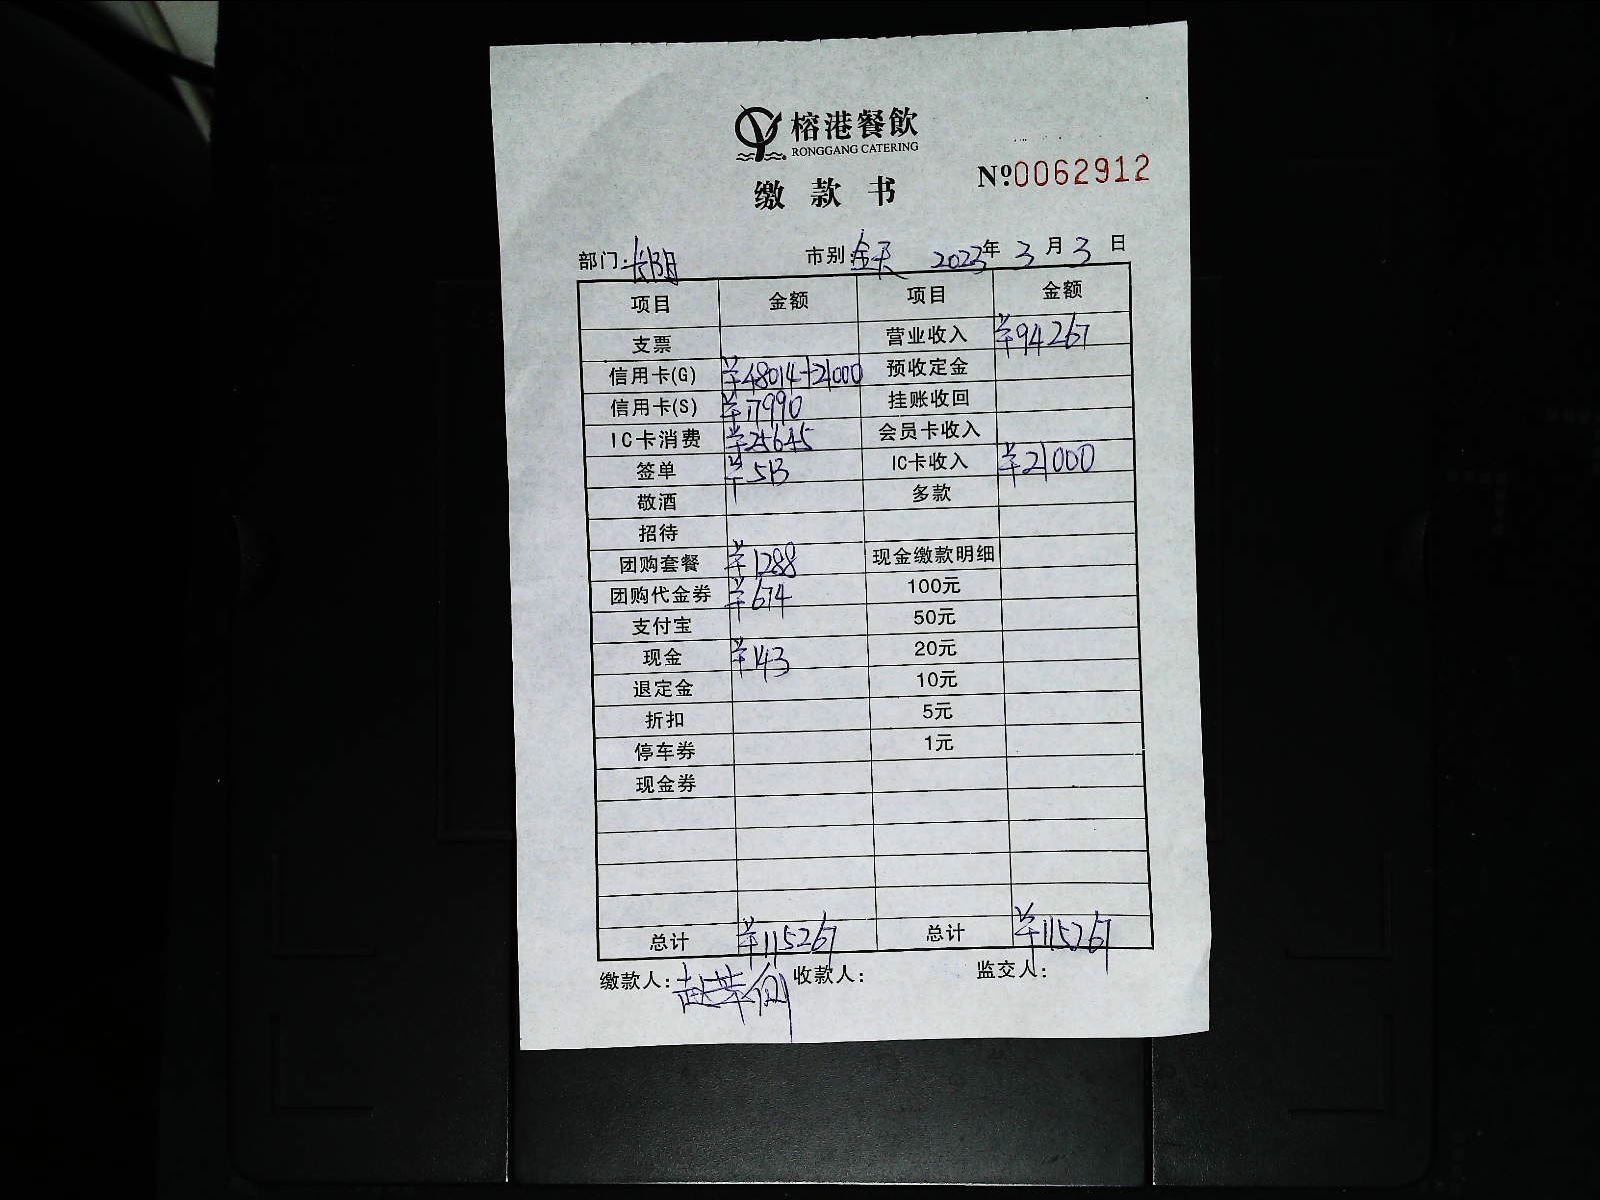 榕港餐飲
RONGGANG CATERING
缴款书
№0062912
部门:长阳 市别 全天 2023年 3 月 3 日
项目 金额 项目 金额
支票 营业收入 ¥94267
信用卡(G) ¥48014+21000 预收定金
信用卡(S) ¥17990 挂账收回
IC卡消费 ¥25645 会员卡收入
签单 ¥513 IC卡收入 ¥21000
敬酒 多款
招待
团购套餐 ¥1288 现金缴款明细
团购代金券 ¥674 100元
支付宝 50元
现金 ¥143 20元
退定金 10元
折扣 5元
停车券 1元
现金券
总计 ¥115267 总计 ¥115267
缴款人: 收款人: 监交人: